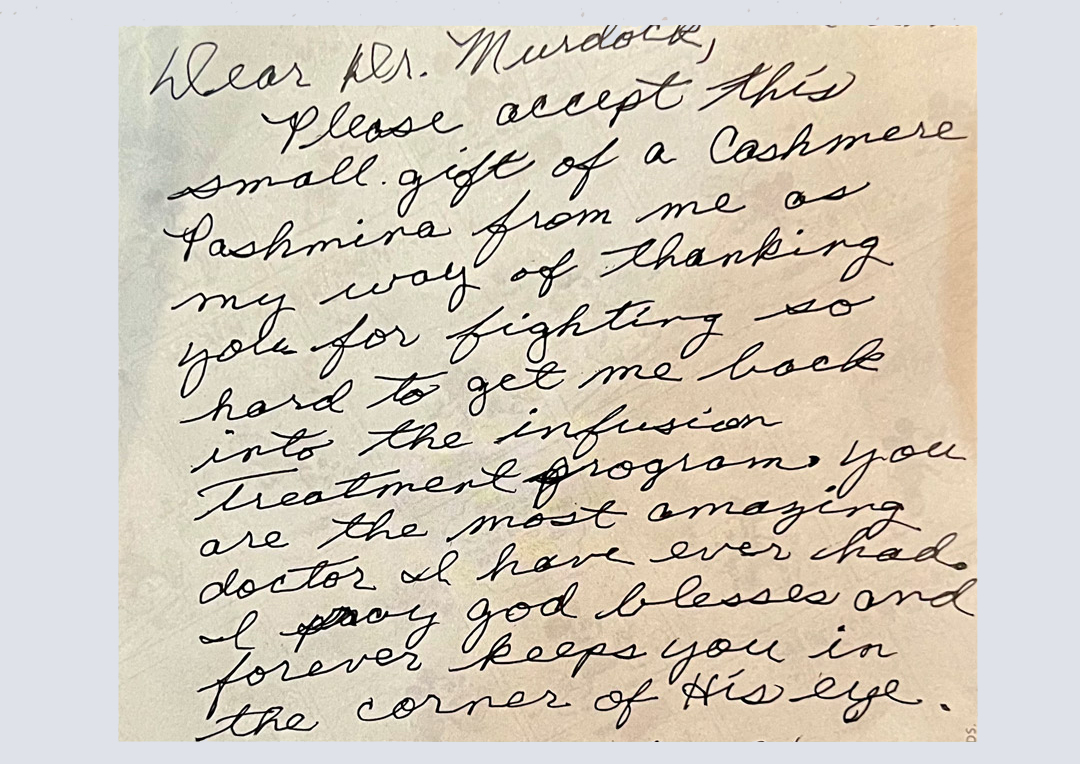 Dear Dr. Murdock,
Please accept this
small gift of a Cashmere
Pashmina from me as
my way of thanking
you for fighting so
hard to get me back
into the infusion
Treatment program. you
are the most amazing
doctor I have ever had.
I pray god blesses and
forever keeps you in
the corner of His eye.